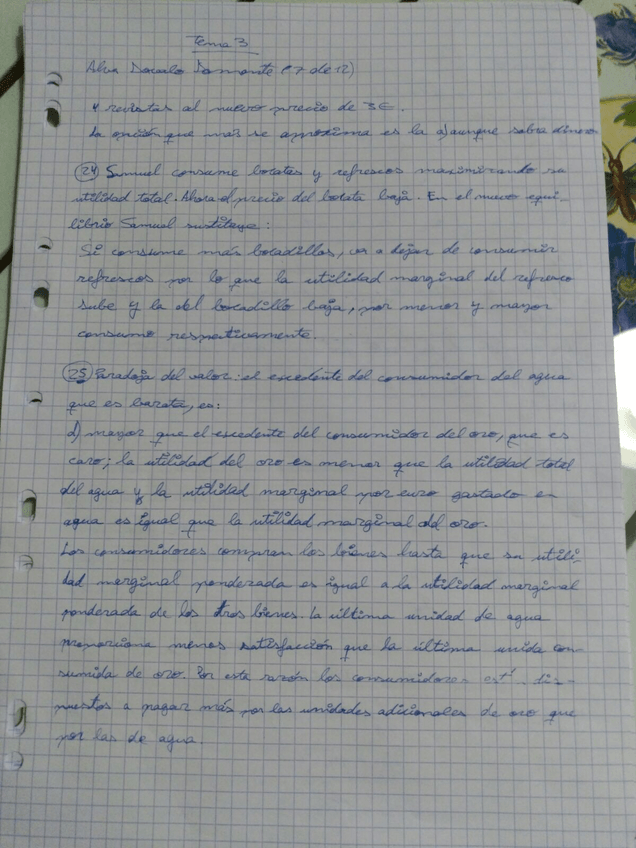 Tema 3
(7 de 12)
y revistas al nuevo precio de 3€.
La opción que más se aproxima es la a) aunque sobra dinero
24 Samuel consume botatas y refrescos maximizando su
utilidad total. Ahora el precio del botata baja. En el nuevo equi-
librio Samuel sustituye:
Si consume más bocadillos, va a dejar de consumir
refrescos por lo que la utilidad marginal del refresco
sube y la del bocadillo baja, por menor y mayor
consumo respectivamente.
25 Paradoja del valor: el excedente del consumidor del agua
que es barata, es:
d) mayor que el excedente del consumidor del oro, que es
caro; la utilidad del oro es menor que la utilidad total
del agua y la utilidad marginal por euro gastado en
agua es igual que la utilidad marginal del oro.
Los consumidores compran los bienes hasta que su utili-
dad marginal ponderada es igual a la utilidad marginal
ponderada de los otros bienes. La última unidad de agua
proporciona menos satisfacción que la última unida con-
sumida de oro. Por esta razón los consumidores est dis-
puestos a pagar más por las unidades adicionales de oro que
por las de agua.